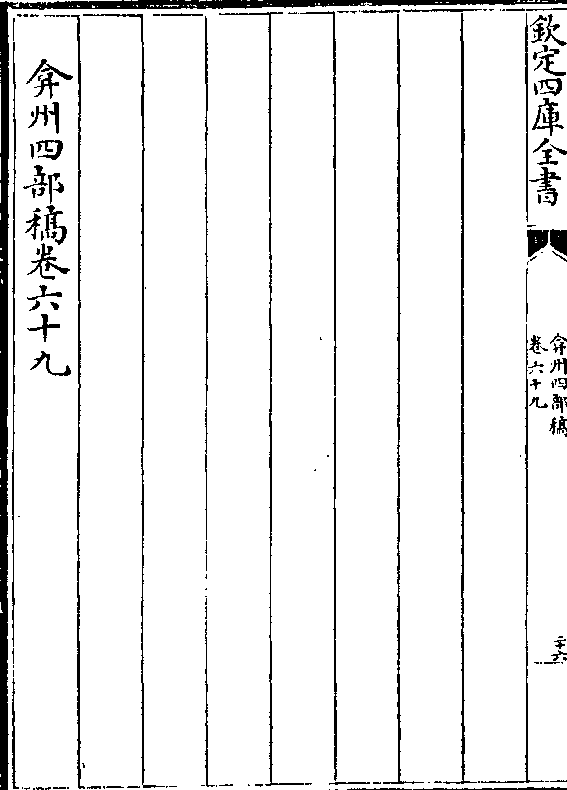 欽定四庫全書
弇州四部稿
卷六十九
二十六
弇州四部稿卷六十九